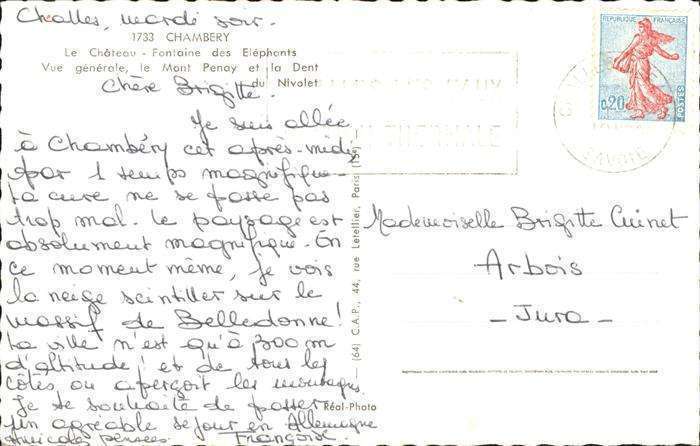 Challes, mardi soir.
1733 CHAMBERY
Le Château - Fontaine des Eléphants
Vue générale, le Mont Penay et la Dent
du Nivolet
Chère Brigitte.
Je suis allée
à Chambéry cet après-midi,
par 1 temps magnifique.
La cure ne se passe pas
trop mal. Le paysage est
absolument magnifique. En
ce moment même, je vois
la neige scintiller sur le
massif de Belledonne!
La ville n'est qu'à 300 m
d'altitude! et de tous les
côtés on aperçoit les montagnes
Je te souhaite de passer
un agréable séjour en Allemagne
amicales pensées. Françoise.
Réal-Photo
(64) C.A.P., 44, rue Letellier, Paris (15e)
REPUBLIQUE FRANÇAISE
0,20
POSTES
THERMALE
SAVOIE
Mademoiselle Brigitte Cuinet
Arbois
- Jura -